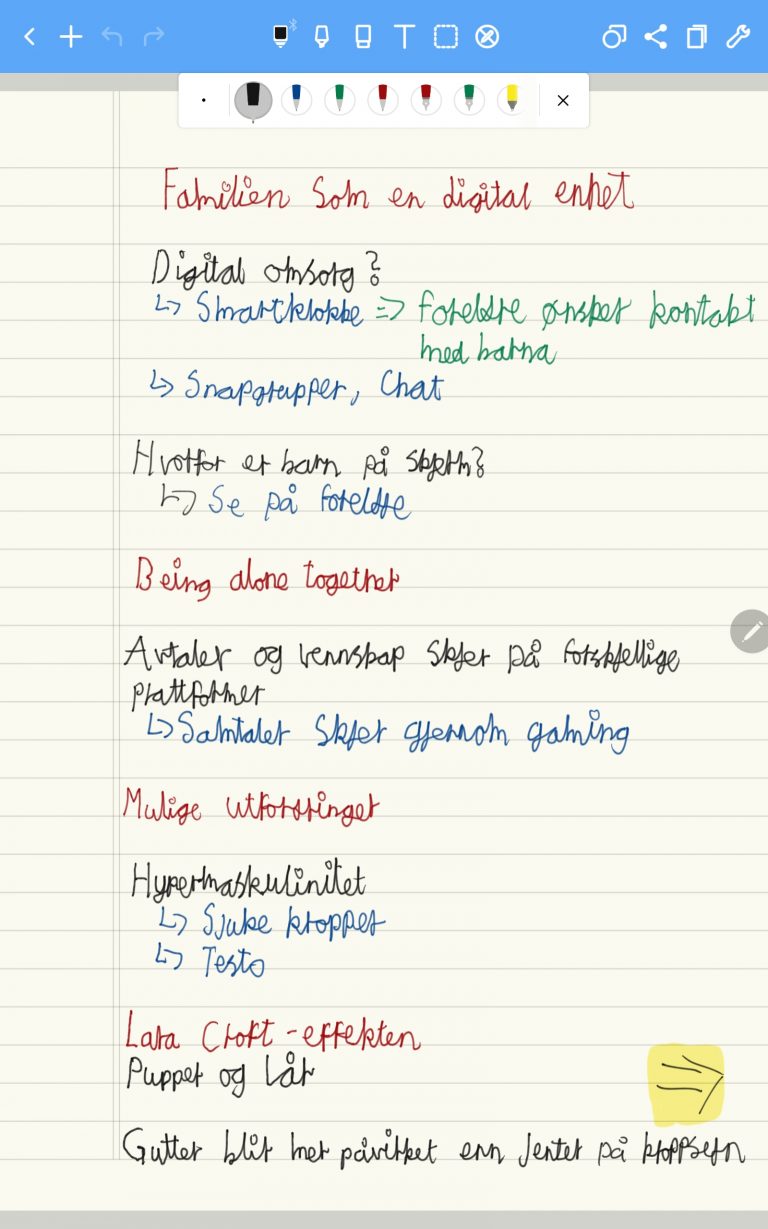 Familien som en digital enhet
Digital omsorg?
↳ Smartklokke => foreldre ønsker kontakt
med barna
↳ Snapgrupper, Chat
Hvorfor er barn på skjerm?
↳ Se på foreldre
Being alone together
Avtaler og vennskap skjer på forskjellige
plattformer
↳ Samtaler skjer gjennom gaming
Mulige utfordringer
Hypermaskulinitet
↳ Sjuke kropper
↳ Testo
Lara Croft-effekten
Pupper og lår
Gutter blir mer påvirket enn jenter på kroppsyn